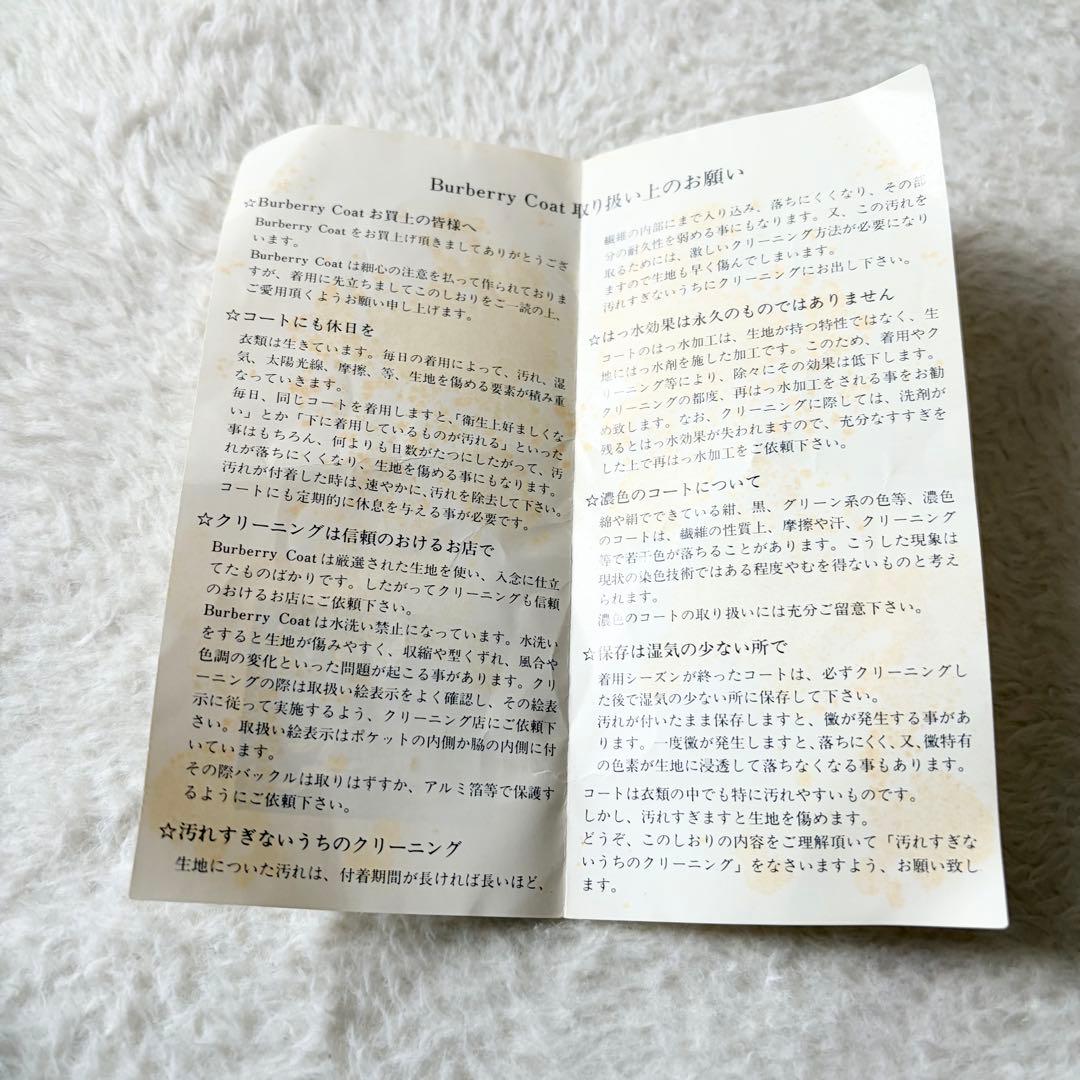 Burberry Coat 取り扱い上のお願い
☆Burberry Coat お買上の皆様へ
Burberry Coat をお買上げ頂きましてありがとうござ
います。
Burberry Coat は細心の注意を払って作られておりま
すが、着用に先立ちましてこのしおりをご一読の上、
ご愛用頂くようお願い申し上げます。
☆コートにも休日を
衣類は生きています。毎日の着用によって、汚れ、湿
気、太陽光線、摩擦、等、生地を傷める要素が積み重
なっていきます。
毎日、同じコートを着用しますと、「衛生上好ましくな
い」とか「下に着用しているものが汚れる」といった
事はもちろん、何よりも日数がたつにしたがって、汚
れが落ちにくくなり、生地を傷める事にもなります。
汚れが付着した時は、速やかに、汚れを除去して下さい。
コートにも定期的に休息を与える事が必要です。
☆クリーニングは信頼のおけるお店で
Burberry Coatは厳選された生地を使い、入念に仕立
てたものばかりです。したがってクリーニングも信頼
のおけるお店にご依頼下さい。
Burberry Coatは水洗い禁止になっています。水洗い
をすると生地が傷みやすく、収縮や型くずれ、風合や
色調の変化といった問題が起こる事があります。クリ
ーニングの際は取扱い絵表示をよく確認し、その絵表
示に従って実施するよう、クリーニング店にご依頼下
さい。取扱い絵表示はポケットの内側か脇の内側に付
いています。
その際バックルは取りはずすか、アルミ箔等で保護す
るようにご依頼下さい。
☆汚れすぎないうちのクリーニング
生地についた汚れは、付着期間が長ければ長いほど、
繊維の内部にまで入り込み、落ちにくくなり、その部
分の耐久性を弱める事にもなります。又、この汚れを
取るためには、激しいクリーニング方法が必要になり
ますので生地も早く傷んでしまいます。
汚れすぎないうちにクリーニングにお出し下さい。
☆はっ水効果は永久のものではありません
コートのはっ水加工は、生地が持つ特性ではなく、生
地にはっ水剤を施した加工です。このため、着用やク
リーニング等により、除々にその効果は低下します。
クリーニングの都度、再はっ水加工をされる事をお勧
め致します。なお、クリーニングに際しては、洗剤が
残るとはっ水効果が失われますので、充分なすすぎを
した上で再はっ水加工をご依頼下さい。
☆濃色のコートについて
綿や絹でできている紺、黒、グリーン系の色等、濃色
のコートは、繊維の性質上、摩擦や汗、クリーニング
等で若干色が落ちることがあります。こうした現象は
現状の染色技術ではある程度やむを得ないものと考え
られます。
濃色のコートの取り扱いには充分ご留意下さい。
☆保存は湿気の少ない所で
着用シーズンが終ったコートは、必ずクリーニングし
た後で湿気の少ない所に保存して下さい。
汚れが付いたまま保存しますと、黴が発生する事があ
ります。一度黴が発生しますと、落ちにくく、又、黴特有
の色素が生地に浸透して落ちなくなる事もあります。
コートは衣類の中でも特に汚れやすいものです。
しかし、汚れすぎますと生地を傷めます。
どうぞ、このしおりの内容をご理解頂いて「汚れすぎな
いうちのクリーニング」をなさいますよう、お願い致し
ます。